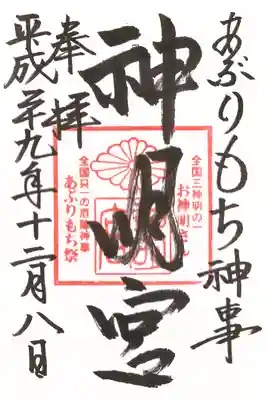 あぶりもち神事
神明宮
奉拝
平成二十九年十二月八日
全国三神明の一
お神明さん
全国只一の厄除神事
あぶりもち祭